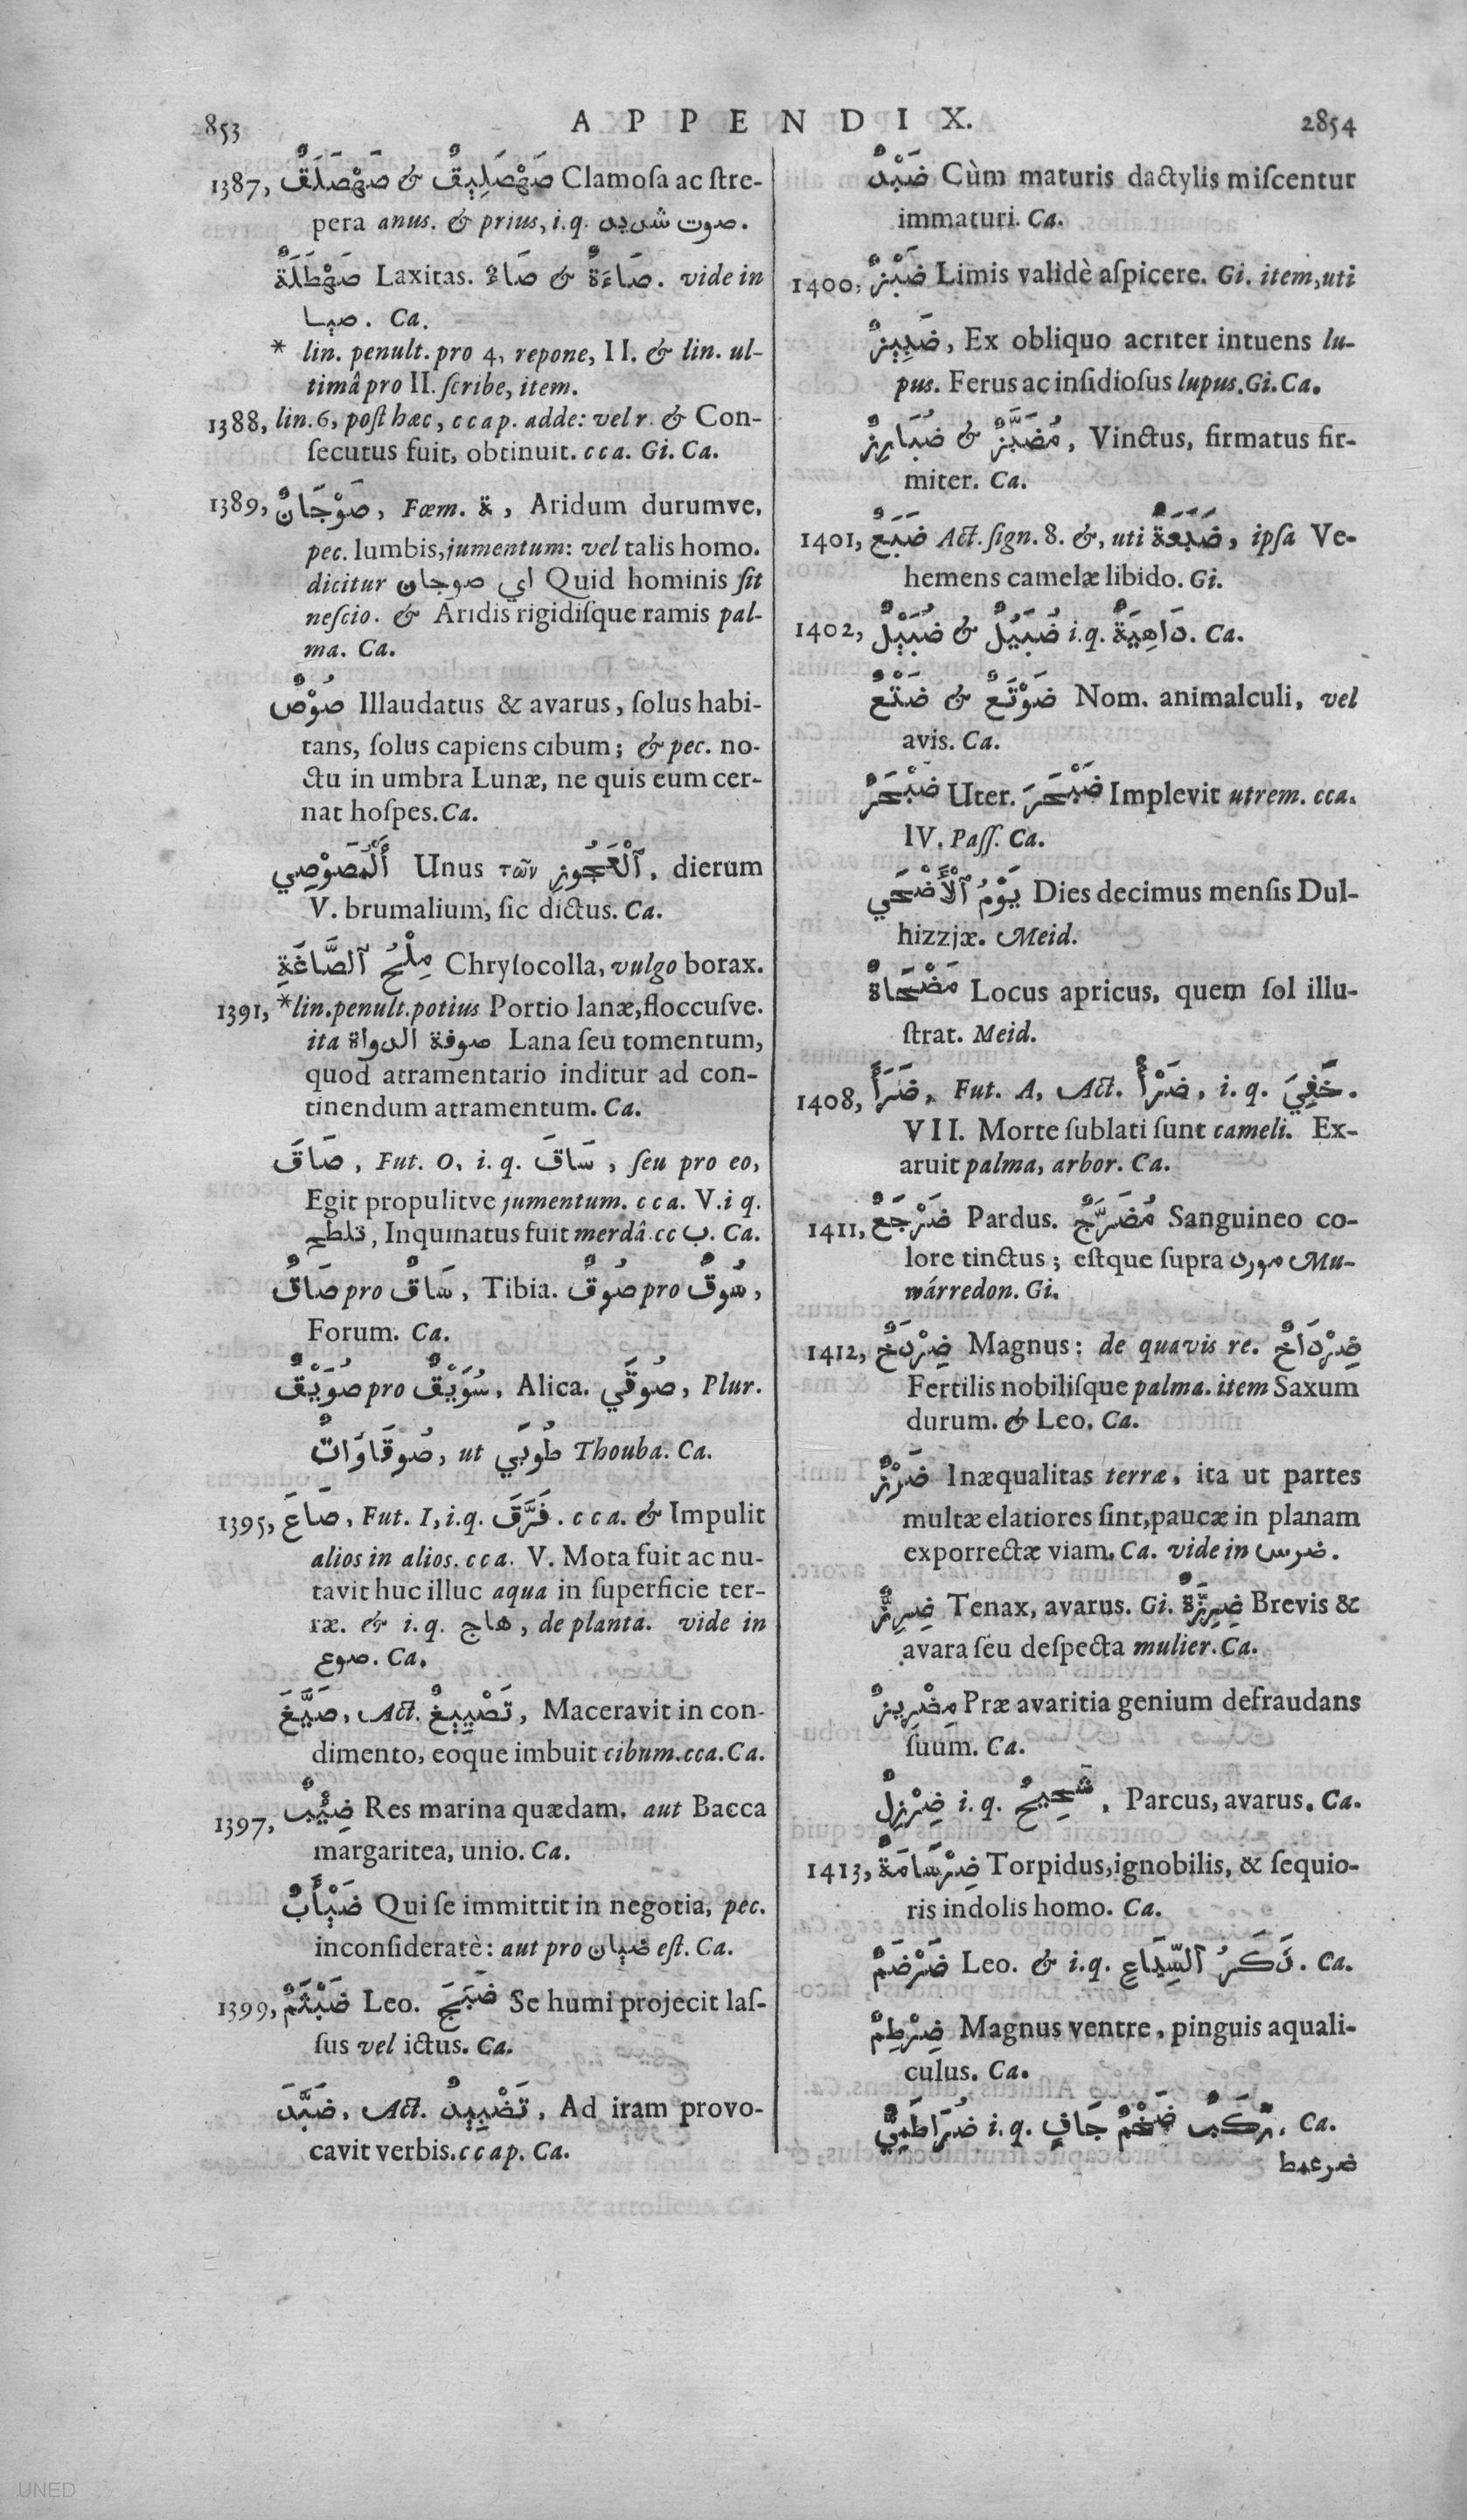 2853
A P P E N D I X.
2854
1387, صَهْصَلَقٌ & صَهْصَلِيقٌ Clamoſa ac ſtre-
pera anus. & prius, i. q. صوت شديد.
صَهْطَلَةٌ Laxitas. صَاةٌ & صَاءَةٌ. vide in
صيا. Ca.
* lin. penult. pro 4, repone, II. & lin. ul-
timâ pro II. ſcribe, item.
1388, lin. 6, poſt hæc, c c a p. adde: vel r. & Con-
ſecutus fuit, obtinuit. c c a. Gi. Ca.
1389, صَوْجَانٌ, Fœm. ةٌ, Aridum durumve,
pec. lumbis, jumentum: vel talis homo.
dicitur اي صوجان Quid hominis ſit
neſcio. & Aridis rigidiſque ramis pal-
ma. Ca.
صُوْصٌ Illaudatus & avarus, ſolus habi-
tans, ſolus capiens cibum; & pec. no-
ctu in umbra Lunæ, ne quis eum cer-
nat hoſpes. Ca.
أَلْمَصَوْصِي Unus τῶν ٱلْعَجُوزِ, dierum
V. brumalium, ſic dictus. Ca.
مِلْحُ ٱلصَّاغَةِ Chryſocolla, vulgo borax.
1391, *lin. penult. potius Portio lanæ, floccuſve.
ita صوفة الدواة Lana ſeu tomentum,
quod atramentario inditur ad con-
tinendum atramentum. Ca.
صَاقَ, Fut. O, i. q. سَاقَ, ſeu pro eo,
Egit propulitve jumentum. c c a. V. i q.
تلطح, Inquinatus fuit merdâ. cc ب. Ca.
صَاقٌ pro سَاقٌ, Tibia. صُوقٌ pro سُوقٌ,
Forum. Ca.
صُوَيْقٌ pro سُوَيْقٌ, Alica. صُوقَي, Plur.
صُوقَاوَاتٌ, ut طُوبَي Thouba. Ca.
1395, صَاعَ, Fut. I, i. q. فَرَّقَ. c c a. & Impulit
alios in alios. c c a. V. Mota fuit ac nu-
tavit huc illuc aqua in ſuperficie ter-
ræ. & i. q. هاج, de planta. vide in
صوع. Ca.
صَيَّغَ, Act. تَصْيِيغٌ, Maceravit in con-
dimento, eoque imbuit cibum. cca. Ca.
1397, ضِئْبٌ Res marina quædam. aut Bacca
margaritea, unio. Ca.
ضَيْأَبٌ Qui ſe immittit in negotia, pec.
inconſideratè: aut pro ضيان eſt. Ca.
1399, ضَبْثَمٌ Leo. ضَبَجَ Se humi projecit laſ-
ſus vel ictus. Ca.
ضَبَّدَ, Act. تَضْبِيدٌ, Ad iram provo-
cavit verbis. c c a p. Ca.
ضَبْدٌ Cùm maturis dactylis miſcentur
immaturi. Ca.
1400, ضَبْزٌ Limis validè aſpicere. Gi. item, uti
ضَبِيزٌ, Ex obliquo acriter intuens lu-
pus. Ferus ac inſidioſus lupus. Gi. Ca.
ضُبَارِزٌ & مُضَبَّزٌ, Vinctus, firmatus fir-
miter. Ca.
1401, ضَبَعٌ Act. ſign. 8. &, uti ضَبَعَةٌ, ipſa Ve-
hemens camelæ libido. Gi.
1402, ضُبَيْلٌ & ضُبَيُلٌ i. q. دَاهِيَةٌ. Ca.
ضَتْعٌ & ضَوْتَعٌ Nom. animalculi, vel
avis. Ca.
ضَبْحَرٌ Uter. ضَبْحَرَ Implevit utrem. cca.
IV. Paſſ. Ca.
يَوْمُ ٱلْأَضْحَي Dies decimus menſis Dul-
hizzjæ. Meid.
مَضْحَاةٌ Locus apricus, quem ſol illu-
ſtrat. Meid.
1408, ضَرَأَ, Fut. A, Act. ضَرْأٌ, i. q. خَفِيَ.
VII. Morte ſublati ſunt cameli. Ex-
aruit palma, arbor. Ca.
1411, ضَرْجَعٌ Pardus. مُضَرَّجٌ Sanguineo co-
lore tinctus; eſtque ſupra مورد Mu-
wárredon. Gi.
1412, ضِرْدَخٌ Magnus: de quavis re. ضِرْدَاخٌ
Fertilis nobiliſque palma. item Saxum
durum. & Leo. Ca.
ضَرْزٌ Inæqualitas terræ, ita ut partes
multæ elatiores ſint, paucæ in planam
exporrectæ viam. Ca. vide in ضرس.
ضِرِزٌّ Tenax, avarus. Gi. ضِرِزَّةٌ Brevis &
avara ſeu deſpecta mulier. Ca.
مِضْرِيزٌ Præ avaritia genium defraudans
ſuum. Ca.
ضِرْزِلٌ i. q. شَحِيحٌ, Parcus, avarus. Ca.
1413, ضِرْسَامَةٌ Torpidus, ignobilis, & ſequio-
ris indolis homo. Ca.
ضَرْضَمٌ Leo. & i. q. ذَكَرُ ٱلسِّبَاعِ. Ca.
ضِرْطِمٌ Magnus ventre, pinguis aquali-
culus. Ca.
ضُرَاطَمِيٌّ i. q. رَكَبٌ ضَخْمٌ جَافٍ, Ca.
ضرعمط
UNED